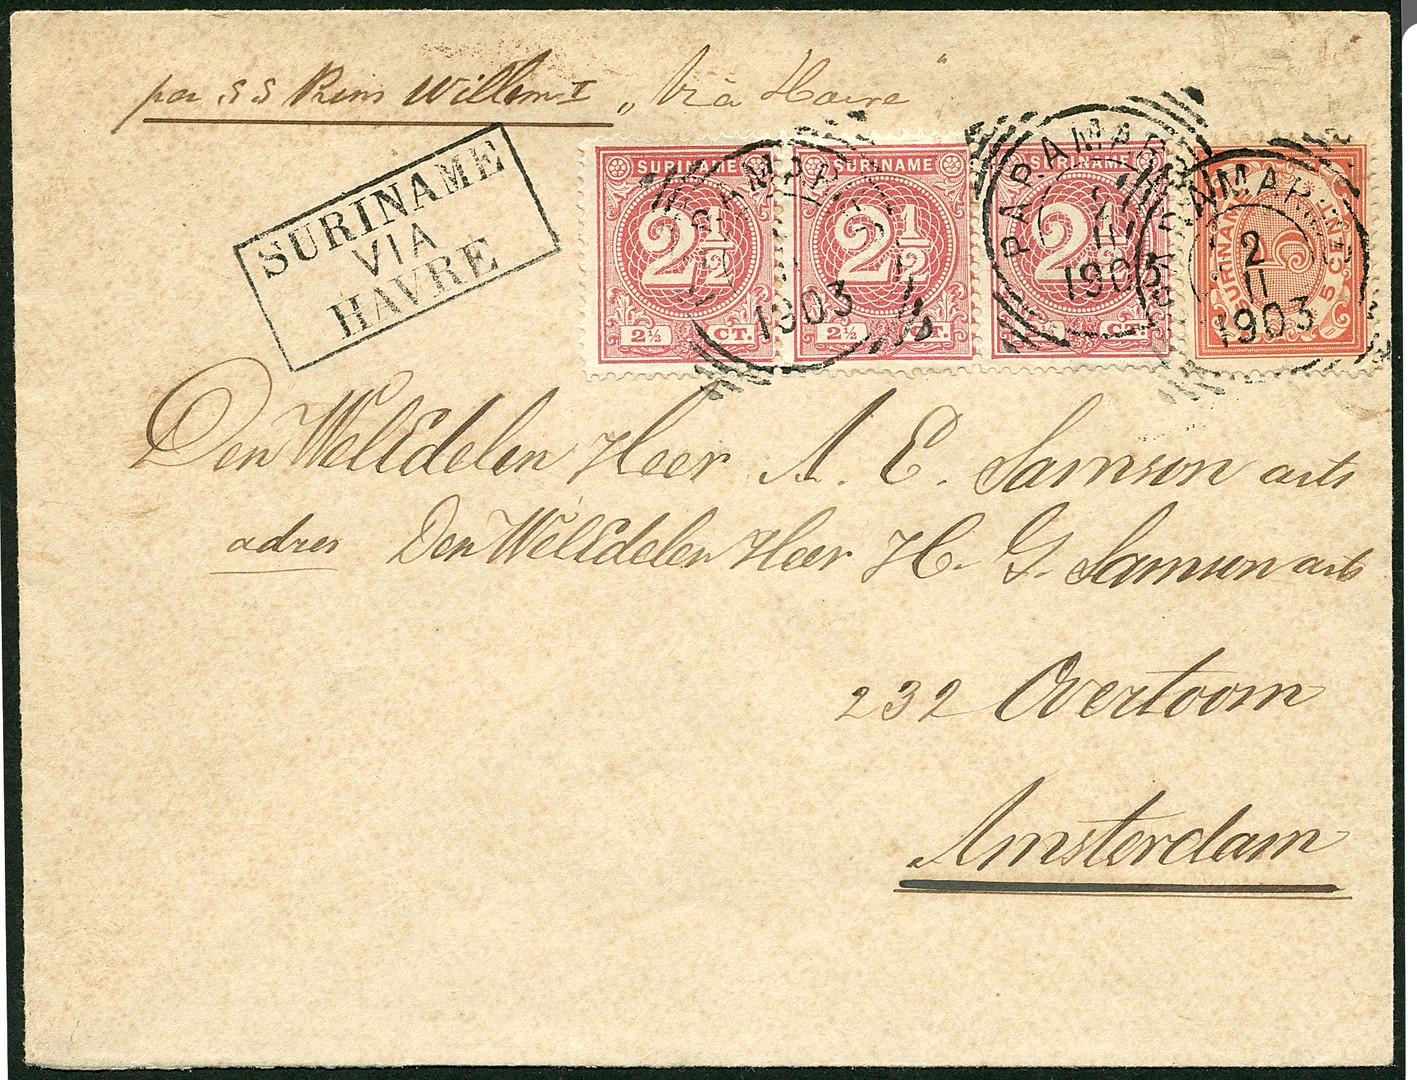 per S.S Prins Willem I „Via Havre"
SURINAME
VIA
HAVRE
SURINAME
2½
2½ CT.
SURINAME
2½
2½ CT.
SURINAME
2½
CT.
SURINAME
5 CENT
1903
PARAMAR
11
1903
RAMAR
2
11
1903
Den WelEdelen Heer A. E. Samson arts
adres Den WelEdelen Heer H. G. Samson arts
232 Overtoom
Amsterdam